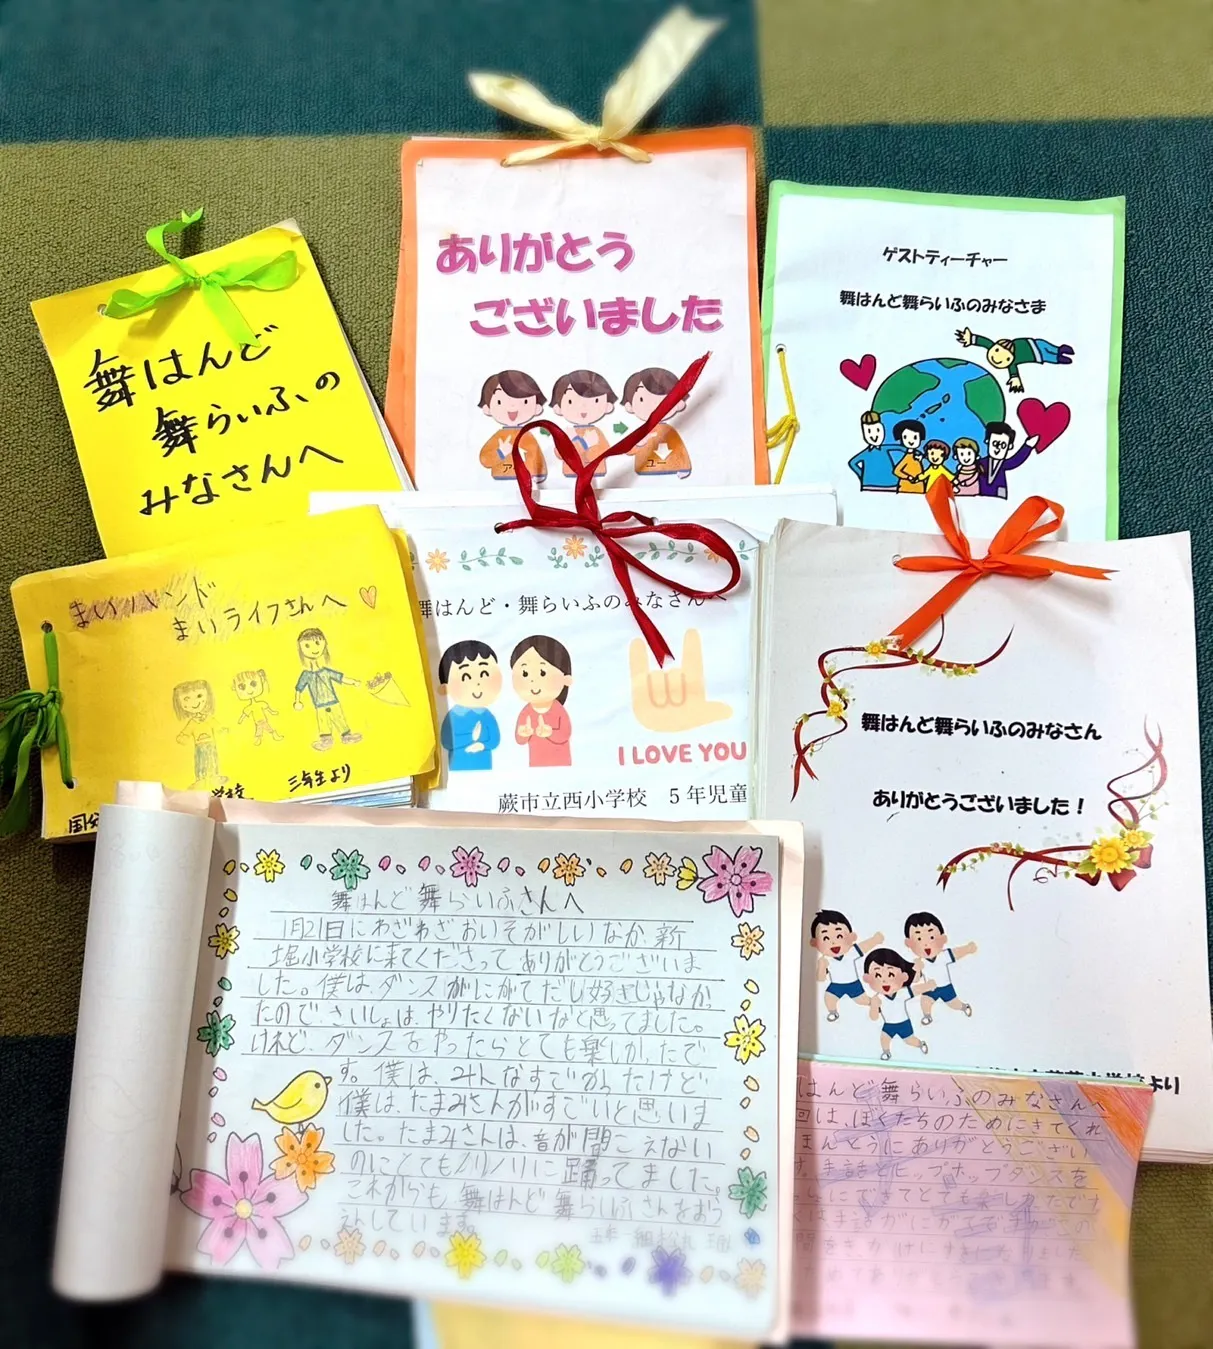 ありがとう
ございました
ゲストティーチャー
舞はんど舞らいふのみなさま
舞はんど
舞らいふの
みなさんへ
まいハンド
まいライフさんへ
三年生より
舞はんど・舞らいふのみなさんへ
I LOVE YOU
蕨市立西小学校 5年児童
舞はんど舞らいふのみなさん
ありがとうございました!
より
舞はんど舞らいふさんへ
1月21日にわざわざおいそがしいなか、新
堀小学校に来てくださってありがとうございま
した。僕は、ダンスがにがてだし好きじゃなか
たので、さいしょは、やりたくないなと思ってました。
けれど、ダンスをやったらとても楽しかたで
す。僕は、みんなすごかったけど
僕は、たまみさんがすごいと思いま
した。たまみさんは、音が聞こえない
のにとてもノリノリに踊ってました。
これからも、舞はんど舞らいふさんをおう
えんしています。
はんど舞らいふのみなさんへ
回は、ぼくたちのためにきてくれ
ほんとうにありがとうござい
す。手話とヒップホップダンスを